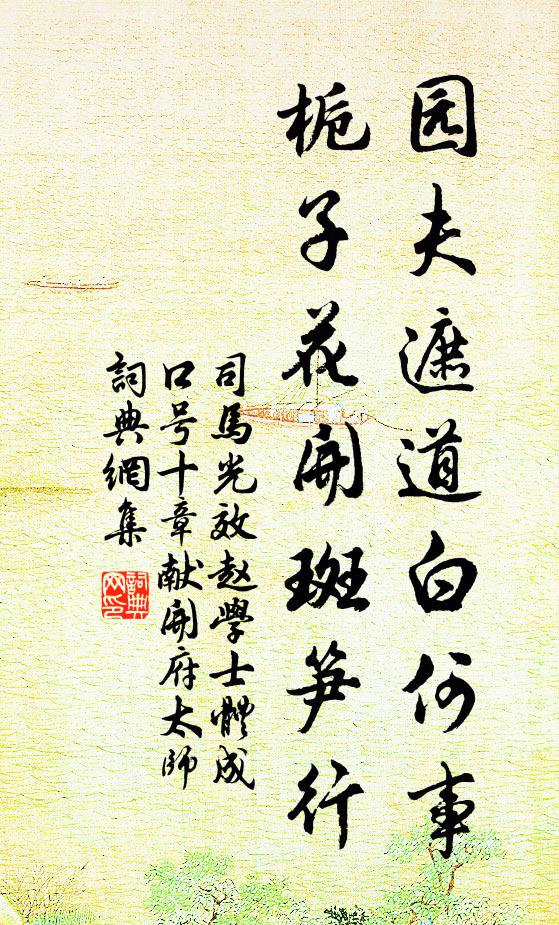 园夫遮道白何事
栀子花开斑笋行
司馬光效赵學士體成
口号十章献開府太師
詞典網集
詞典网印